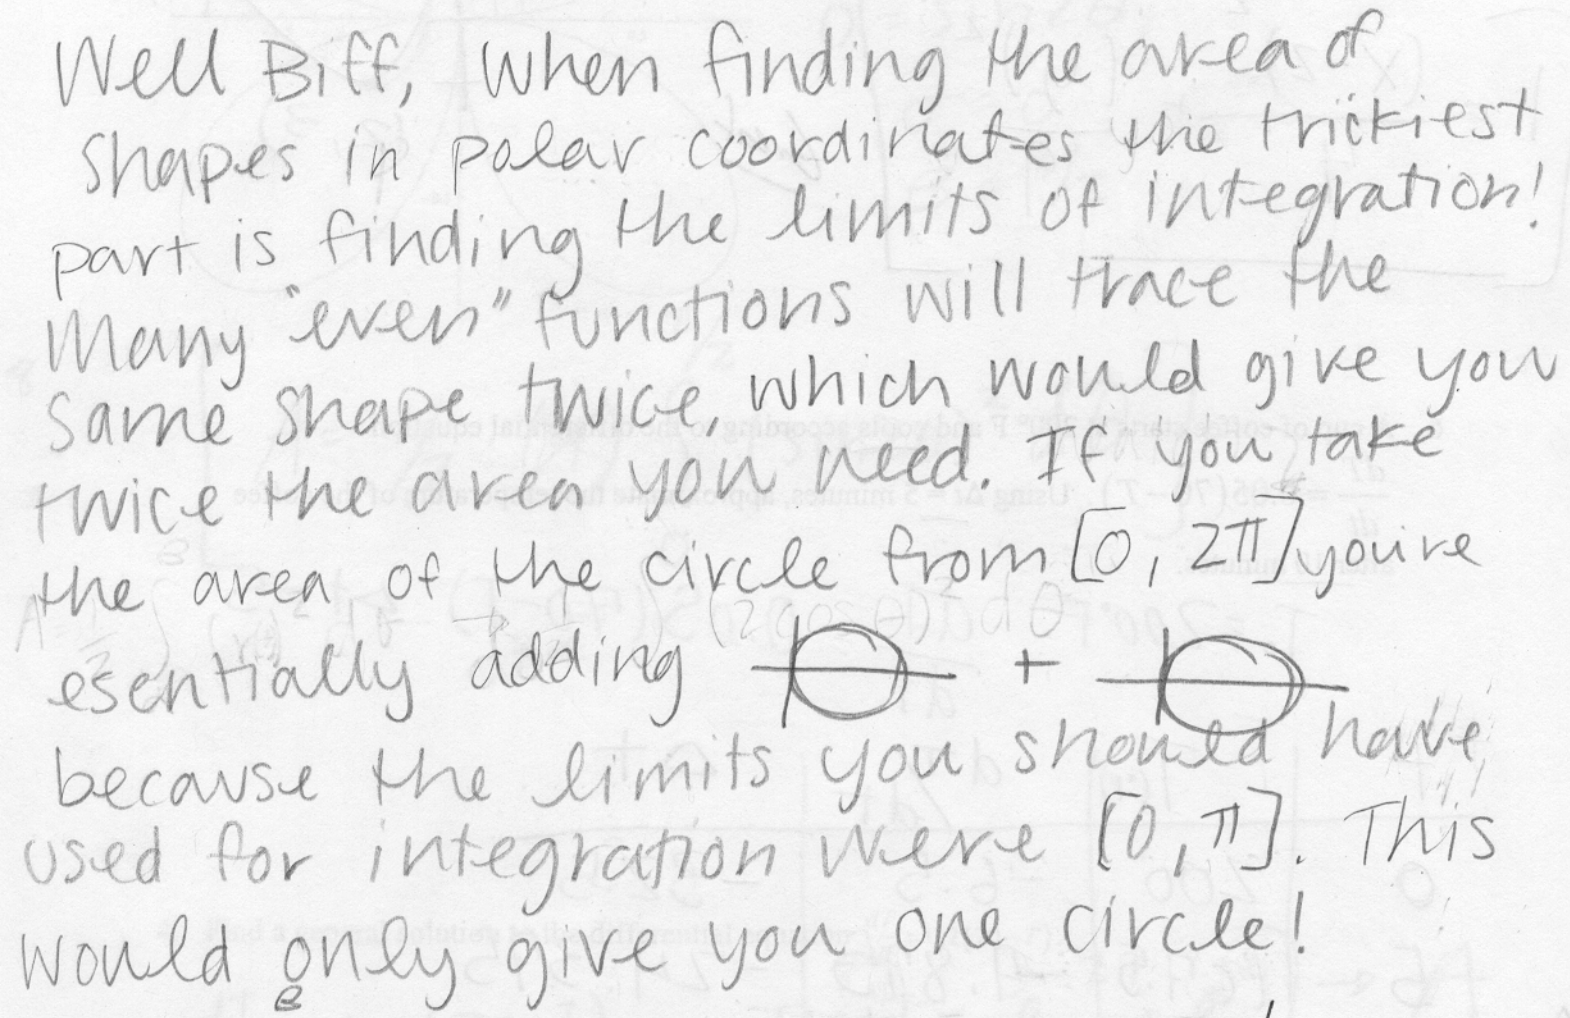 Well Biff, when finding the area of
shapes in polar coordinates the trickiest
part is finding the limits of integration!
Many "even" functions will trace the
same shape twice, which would give you
twice the area you need. If you take
the area of the circle from [0, 2π] you're
esentially adding +
because the limits you should have
used for integration were [0, π]. This
would only give you one circle!